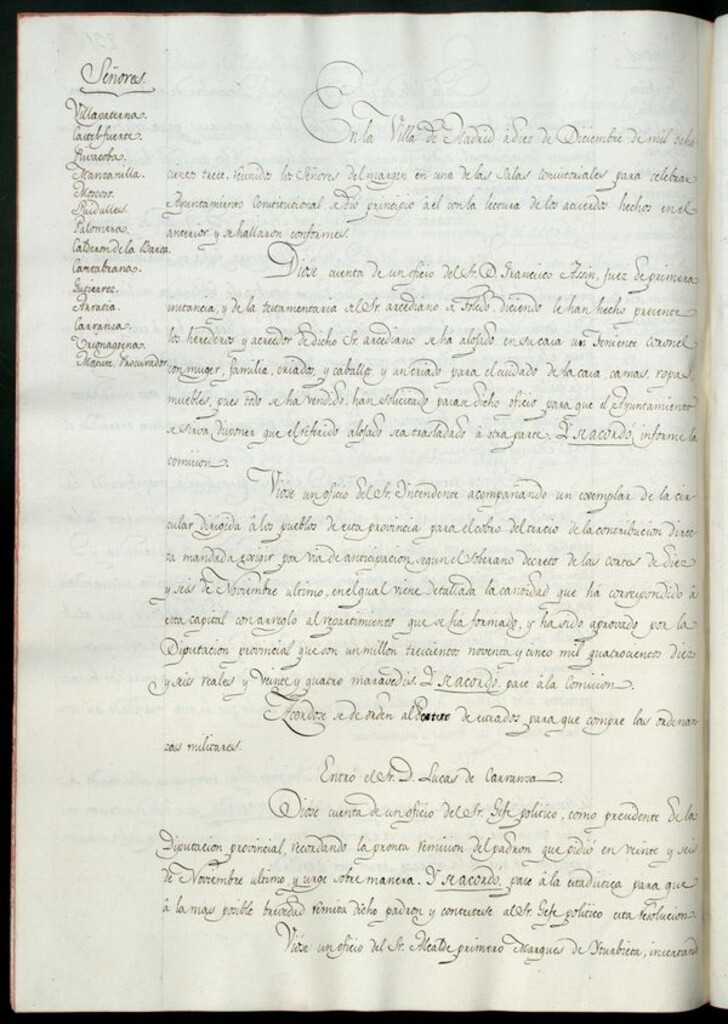 Señores.
Villapaterna.
Castel-fuerte.
Rivacoba.
Manzanilla.
Moscoso.
Puidulles.
Palomera.
Calderon de la Barca.
Cantabrana.
Gutierrez.
Arratia.
Carranza.
Procurador.
En la Villa de Madrid á diez de Diciembre de mil ocho
cientos trece, reunidos los Señores del margen en una de las Salas consistoriales para celebrar
Ayuntamiento Constitucional, se dio principio á el con la lectura de los acuerdos hechos en el
anterior y se hallaron conformes.
Diose cuenta de un oficio del Sr. D. Francisco Assin, Juez de primera
instancia, y de la testamentaria del Sr. arcediano de Toledo, diciendo le han hecho presente
los herederos y acreedor de dicho Sr. arcediano se ha alojado en su casa un Teniente Coronel
con muger, familia, criados, y caballos, y un criado para el cuidado de la casa, camas, ropas,
muebles, pues todo se ha vendido, han solicitado pasase dicho oficio para que el Ayuntamiento
se sirva disponer que el referido alojado sea trasladado á otra parte. Y se acordó, informe la
comision.
Viose un oficio del Sr. Yntendente acompañando un exemplar de la cir
cular dirigida á los pueblos de esta provincia para el cobro del tercio de la contribucion direc
ta mandada exigir por via de anticipacion, segun el soberano decreto de las cortes de diez
y seis de Noviembre ultimo, en el qual viene detallada la cantidad que há correspondido á
esta capital con arreglo al repartimiento que se há formado, y há sido aprovado por la
Diputacion provincial que son un millon trescientos noventa y cinco mil quatrocientos diez
y seis reales y veinte y quatro maravedis. Y se acordó, pase á la Comision.
Acordose se de orden al Portero de estrados para que compre las ordenan
zas militares.
Entró el Sr. D. Lucas de Carranza.
Diose cuenta de un oficio del Sr. Gefe politico, como presidente de la
Diputacion provincial, recordando la pronta remision del padron que pidió en veinte y seis
de Noviembre ultimo y urge sobre manera. Y se acordó, pase á la estadistica para que
á la mas posible brevedad remita dicho padron y contextese al Sr. Gefe politico esta resolucion.
Viose un oficio del Sr. Alcalde primero Marques de Yturbieta, insertando